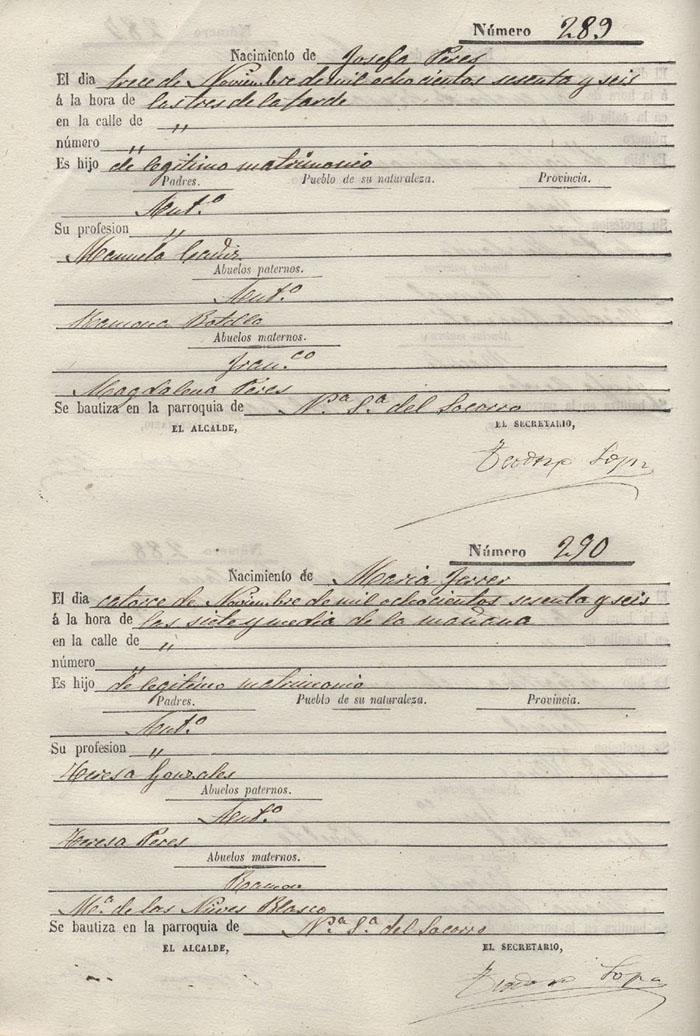 Número 289
Nacimiento de Josefa Peres
El dia trece de Noviembre de mil ochocientos sesenta y seis
á la hora de las tres de la tarde
en la calle de "
número "
Es hijo de legitimo matrimonio
Padres. Pueblo de su naturaleza. Provincia.
Ant.º
Su profesion "
Manuela
Abuelos paternos.
Ant.º
Ramona Botella
Abuelos maternos.
Fran.co
Magdalena Peres
Se bautiza en la parroquia de N.ª S.ª del Socorro
EL ALCALDE, EL SECRETARIO,
Número 290
Nacimiento de Maria Ferrer
El dia catorce de Noviembre de mil ochocientos sesenta y seis
á la hora de las siete y media de la mañana
en la calle de "
número "
Es hijo de legitimo matrimonio
Padres. Pueblo de su naturaleza. Provincia.
Ant.º
Su profesion "
Teresa Gonzales
Abuelos paternos.
Ant.º
Teresa Peres
Abuelos maternos.
Ramon
M.ª de las Nieves Blasco
Se bautiza en la parroquia de N.ª S.ª del Socorro
EL ALCALDE, EL SECRETARIO,